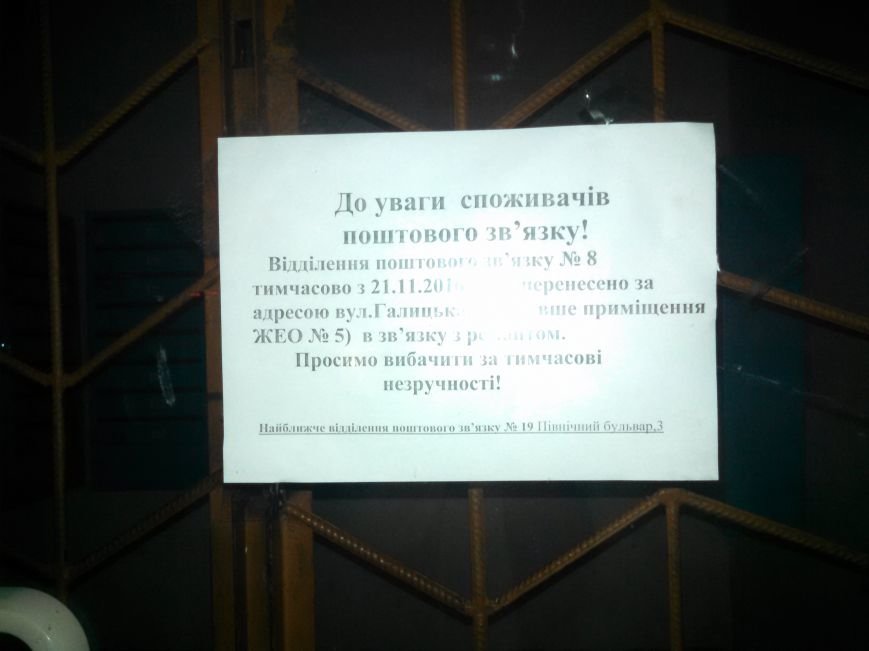 До уваги споживачів
поштового зв’язку!
Відділення поштового зв’язку № 8
тимчасово з 21.11.2016 перенесено за
адресою вул.Галицька приміщення
ЖЕО № 5) в зв’язку з ремонтом.
Просимо вибачити за тимчасові
незручності!
Найближче відділення поштового зв’язку № 19 Північний бульвар,3